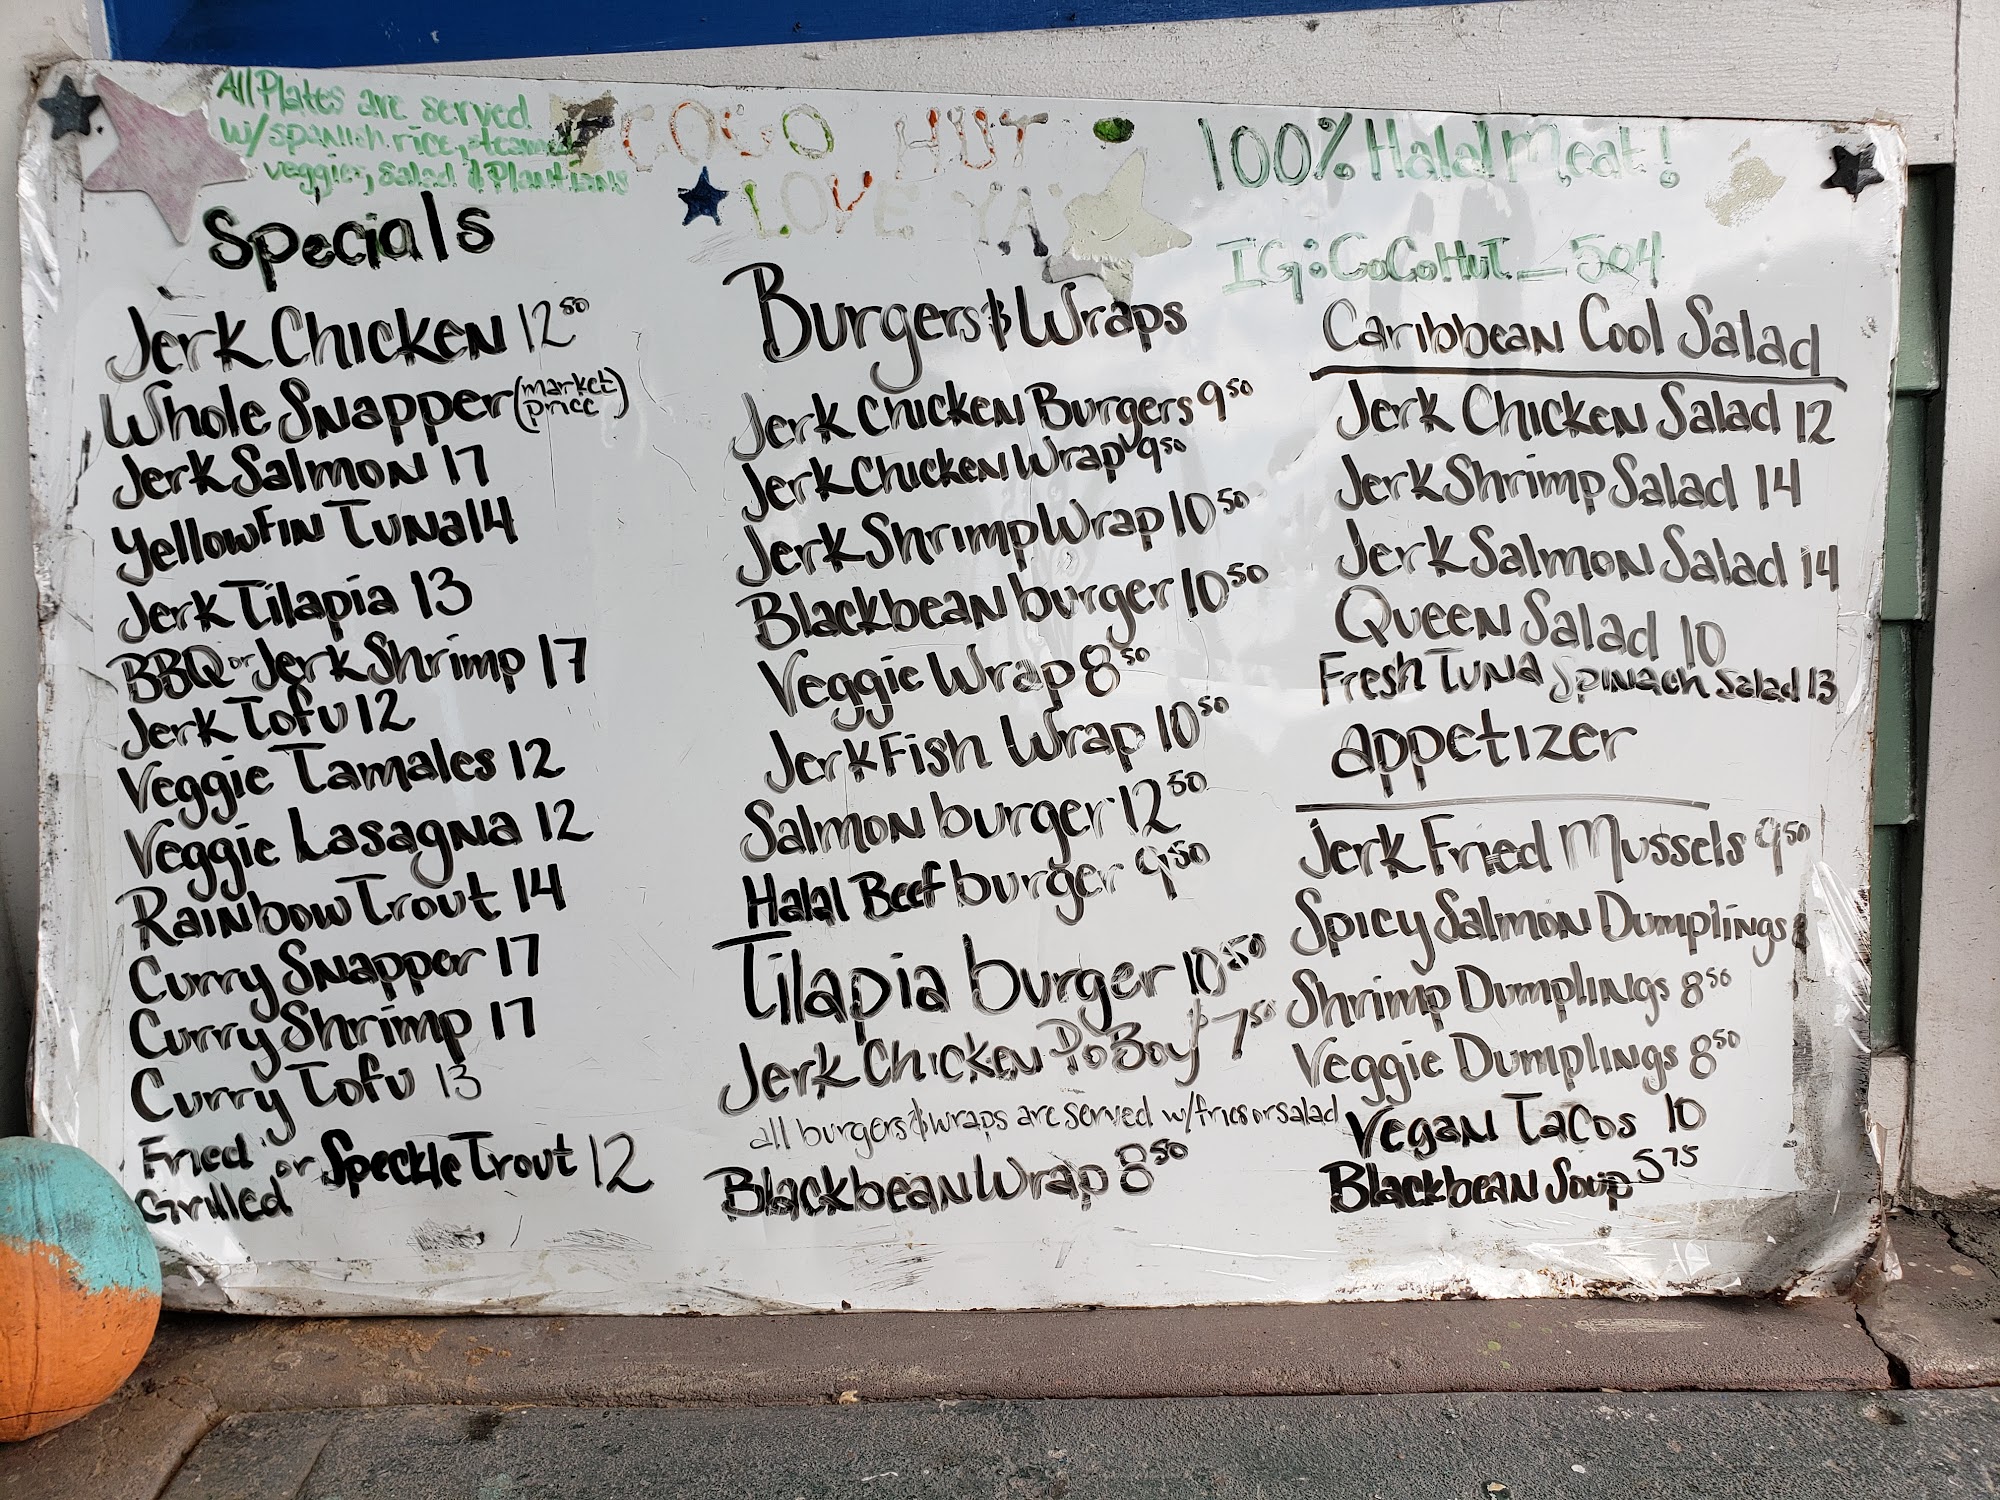 All Plates are served
w/ spanish rice, steamed
veggies, salad & Plantians
COCO HUT
LOVE YA
100% Halal Meat!
IG: CoCoHut_504
Specials
Jerk Chicken 12 50
Whole Snapper (market price)
Jerk Salmon 17
Yellowfin Tuna 14
Jerk Tilapia 13
BBQ or Jerk Shrimp 17
Jerk Tofu 12
Veggie Tamales 12
Veggie Lasagna 12
Rainbow Trout 14
Curry Snapper 17
Curry Shrimp 17
Curry Tofu 13
Fried or Grilled Speckle Trout 12
Burgers & Wraps
Jerk Chicken Burgers 9 50
Jerk Chicken Wrap 9 50
Jerk Shrimp Wrap 10 50
Blackbean burger 10 50
Veggie Wrap 8 50
Jerk Fish Wrap 10 50
Salmon burger 12 50
Halal Beef burger 9 50
Tilapia burger 10 50
Jerk Chicken Po Boy $7 50
all burgers & wraps are served w/ fries or salad
Blackbean Wrap 8 50
Caribbean Cool Salad
Jerk Chicken Salad 12
Jerk Shrimp Salad 14
Jerk Salmon Salad 14
Queen Salad 10
Fresh Tuna Spinach Salad 13
appetizer
Jerk Fried Mussels 9 50
Spicy Salmon Dumplings
Shrimp Dumplings 8 50
Veggie Dumplings 8 50
Vegan Tacos 10
Blackbean Soup 5 75